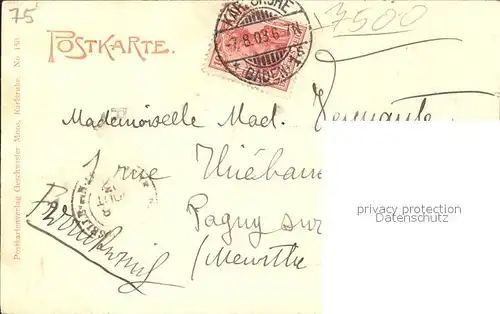 75
7500
POSTKARTE.
KARLSRUHE
-7.8.03.6-7N
* (BADEN) 1 S
Mademoiselle Mad.
1 rue Thiébau
Pagny sur
(Meurthe
Postkartenverlag Geschwister Moos, Karlsruhe. No 150
privacy protection
Datenschutz